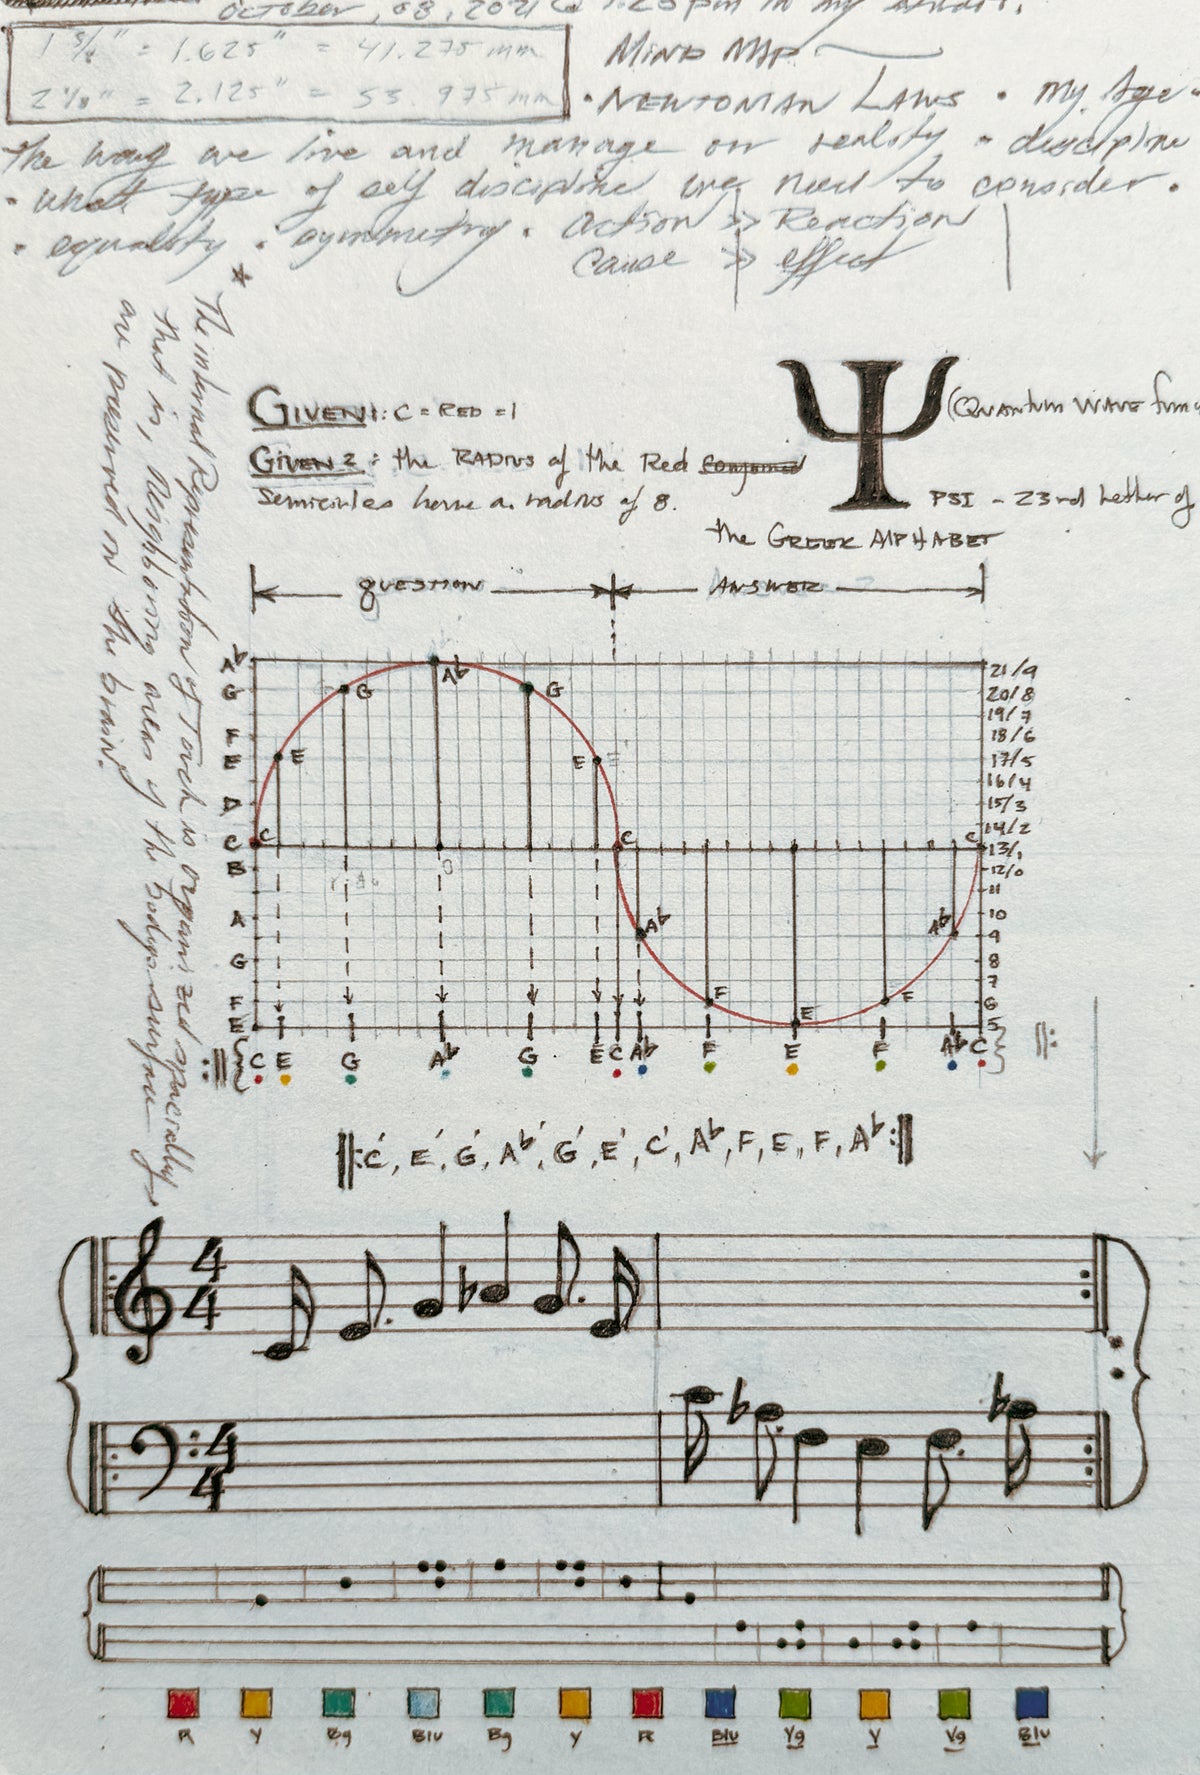 October, 08, 2021 @ 1:25pm in my
1 5/8" = 1.625" = 41.275 mm
2 1/8" = 2.125" = 53.975 mm
MIND MAP
• NEWTONIAN LAWS • my Age •
the way we live and manage our reality • discipline
• what type of self discipline we need to consider •
• equality • symmetry • action >> Reaction
cause >> effect
*
The internal Representation of Touch is organized spacially
that is, Neighboring areas of the bodys surface
are preserved in the brain.
GIVEN 1: C = RED = 1
GIVEN 2: the RADIUS of the Red
semicircles have a radius of 8.
Ψ
(QUANTUM WAVE
PSI - 23rd Letter of
the GREEK ALPHABET
QUESTION ANSWER
A♭ G F E D C B A G F E
C E G A♭ G E C A♭ F E F A♭ C
21/9
20/8
19/7
18/6
17/5
16/4
15/3
14/2
13/1
12/0
11
10
9
8
7
6
5
C E G A♭ G E C A♭ F E F A♭ C
‖: C', E', G', A♭', G', E', C', A♭, F, E, F, A♭ :‖
4 4
4 4
R Y Bg Blu Bg Y R Blu Yg Y Yg Blu